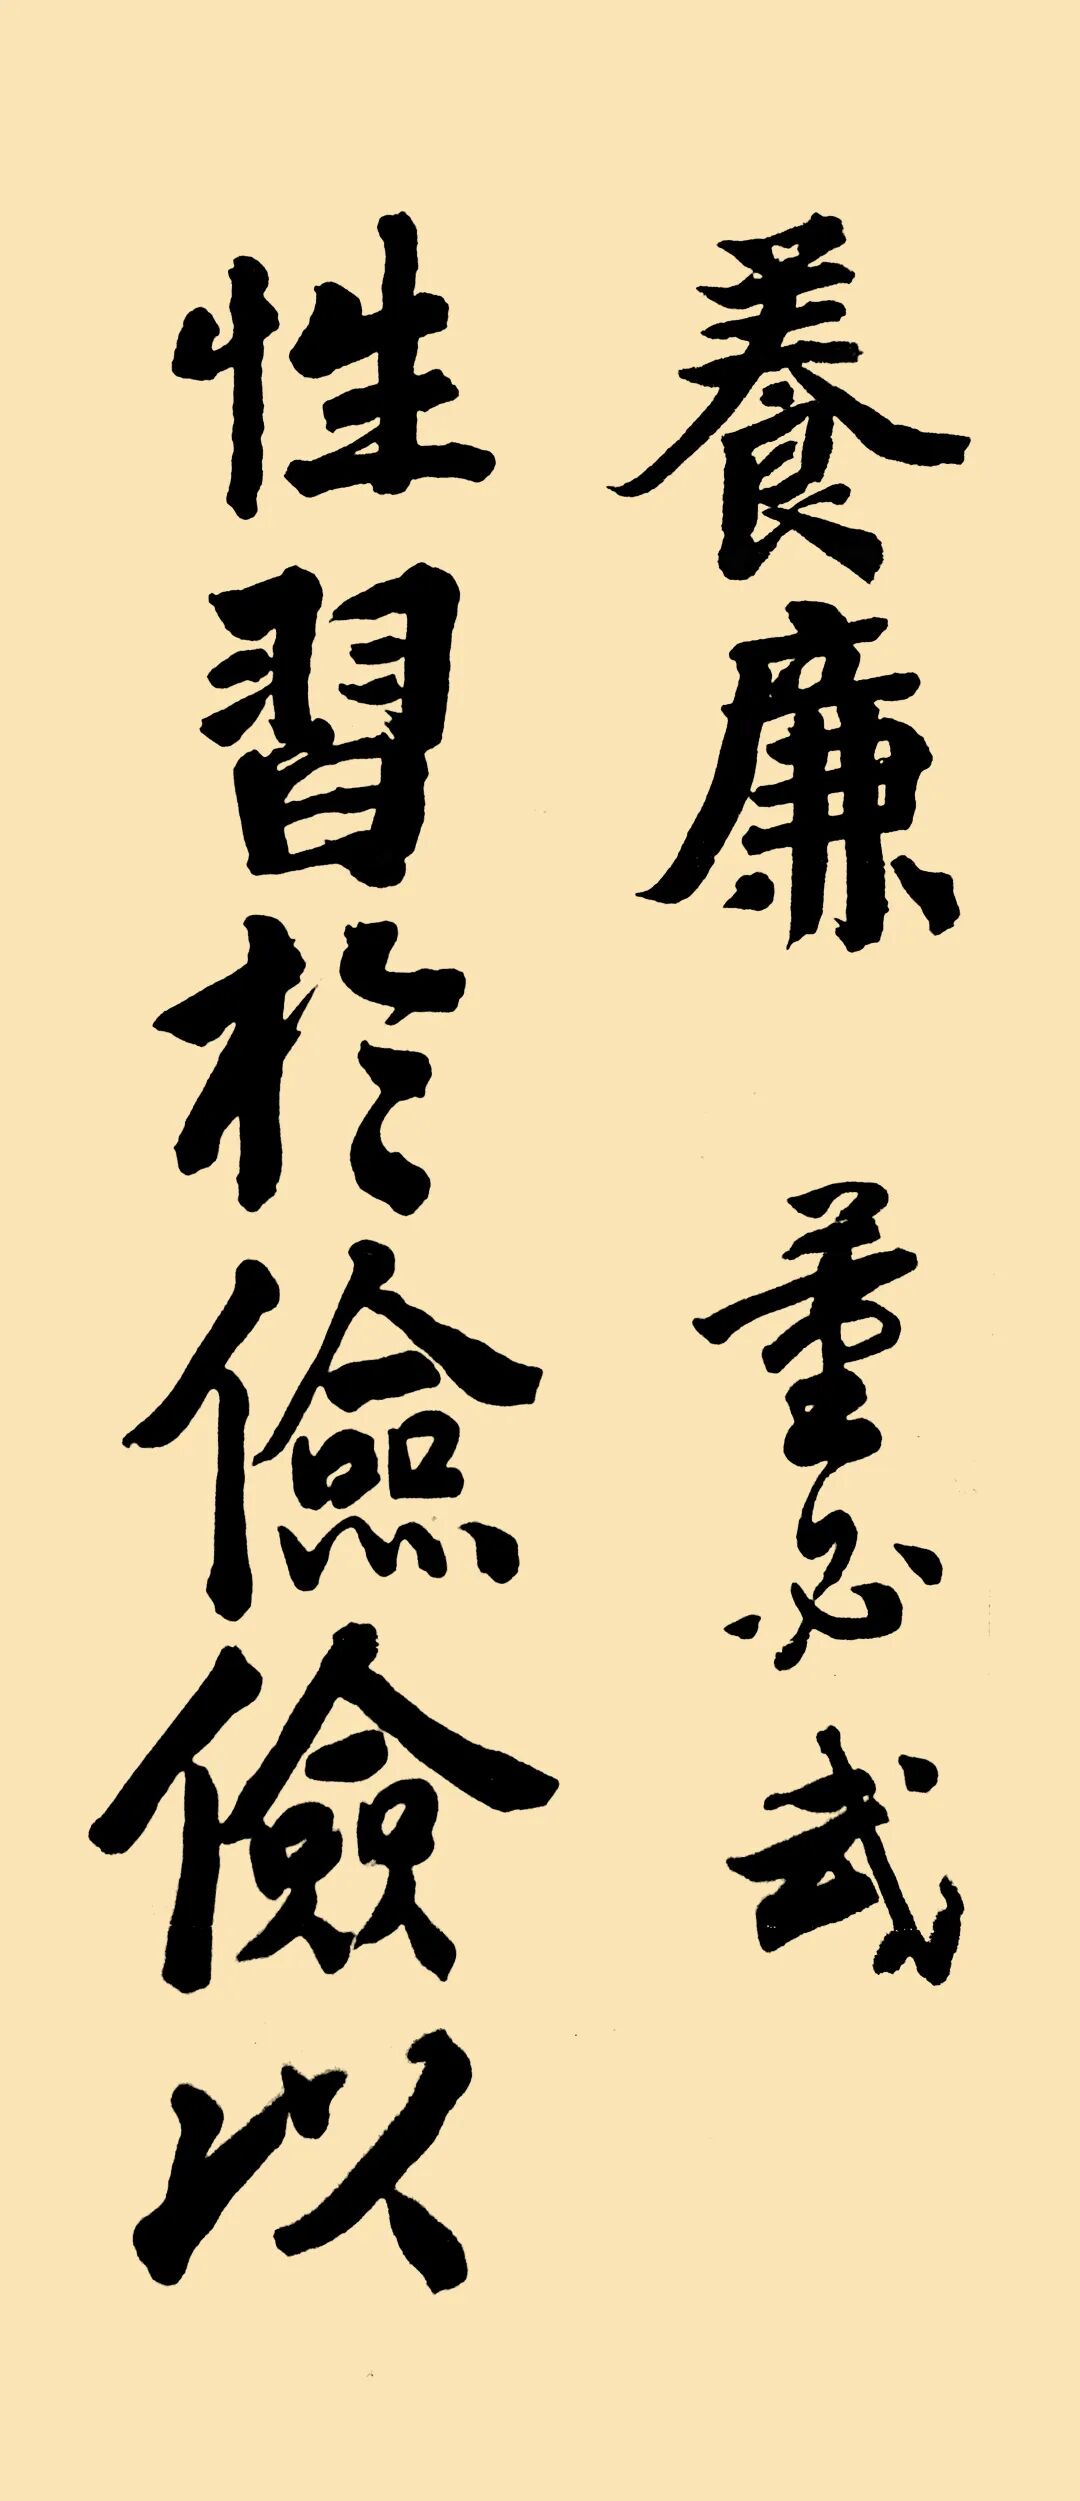 性習於儉儉以
養廉 董必武